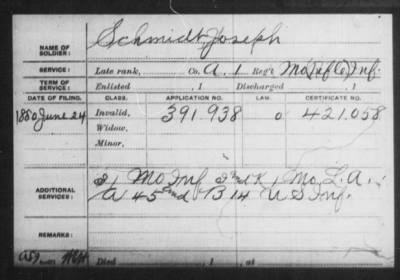 NAME OF SOLDIER: Schmidt, Joseph
SERVICE: Late rank, Co. A. 1 Reg't Mo Inf
TERM OF SERVICE: Enlisted , 1 Discharged , 1
DATE OF FILING. CLASS. APPLICATION NO. LAW. CERTIFICATE NO.
1880 June 24 Invalid, 391.938 0 421.058
Widow,
Minor,
ADDITIONAL SERVICES: Mo Inf K, Mo. L. A.
A 45 B 14 U S Inf.
REMARKS:
Died , 1 , at